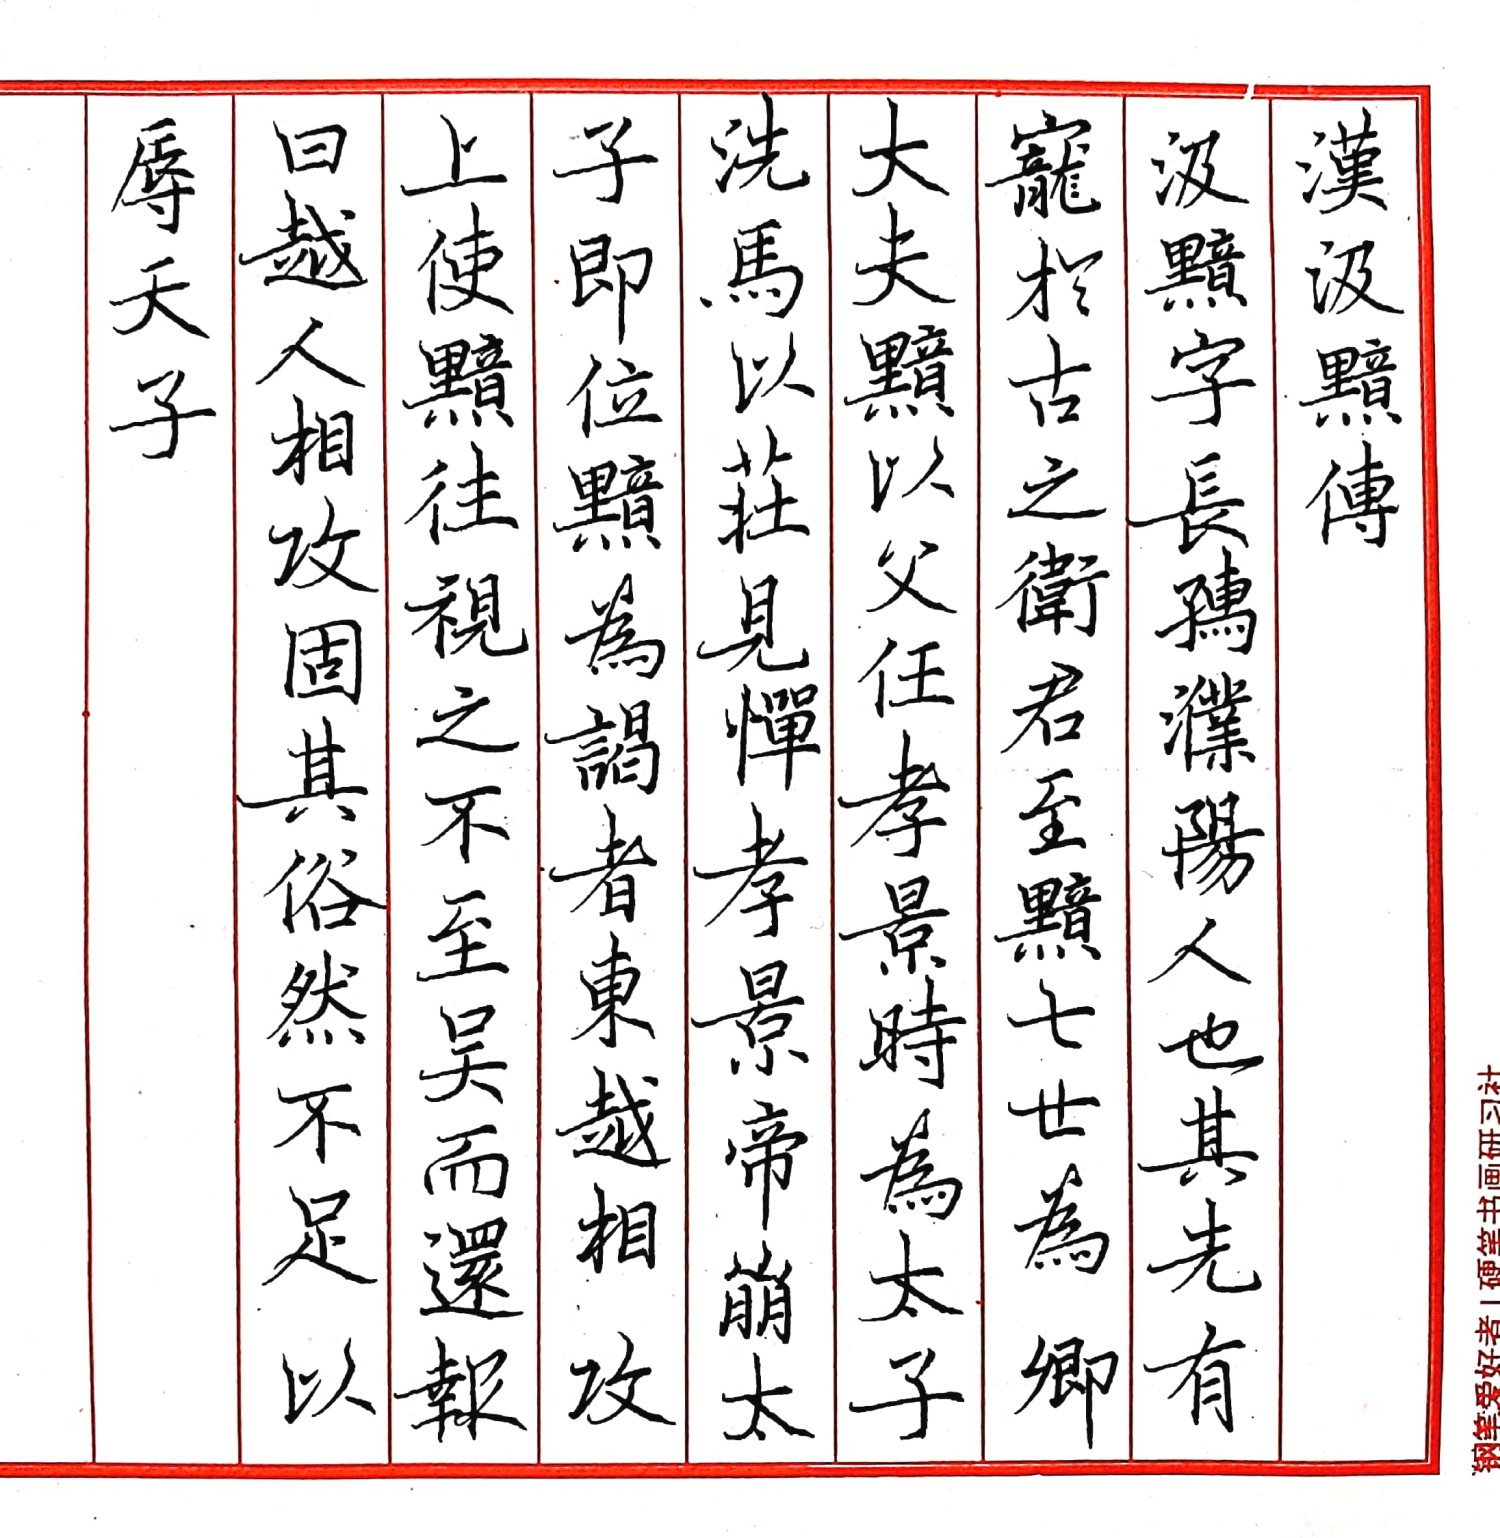 漢汲黯傳
汲黯字長孺濮陽人也其先有
寵於古之衛君至黯七世為卿
大夫黯以父任孝景時為太子
洗馬以莊見憚孝景帝崩太
子即位黯為謁者東越相攻
上使黯往視之不至吴而還報
曰越人相攻固其俗然不足以
辱天子
钢笔爱好者|硬笔书画研习社